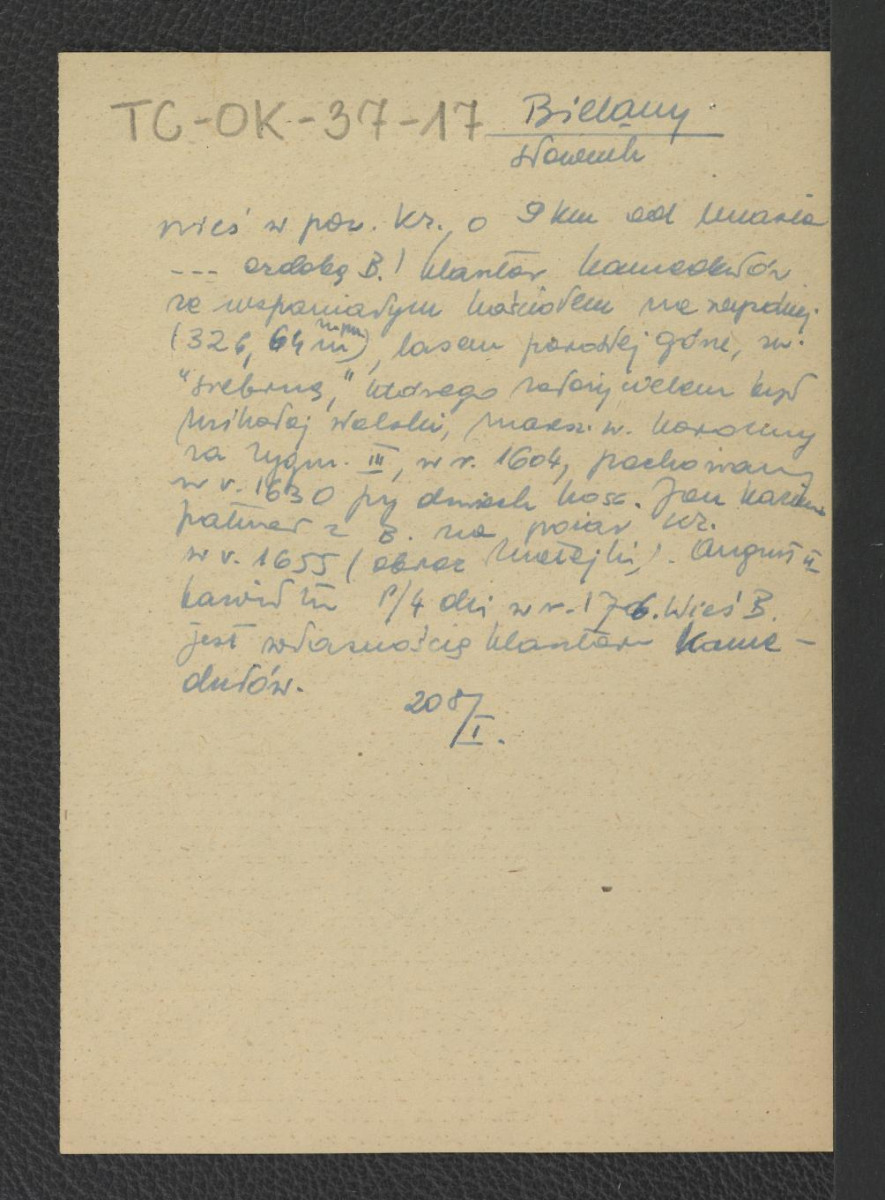 TC-OK-37-17 Bielany
słownik
wieś w pow. kr., o 9 km od miasta
--- ozdobą B. ! klasztor kamedułów
ze wspaniałym kościołem na
(326,64 m npm), lasem porosłej górze, zw.
"srebrną," którego założycielem był
Mikołaj Wolski, marsz. w. koronny
za Zygm. III, w r. 1604, pochowany
w r. 1630 przy drzwiach kość. Jan Kazim.
patrzał z B. na pożar Kr.
w r. 1655 (obraz Matejki). August II
bawił tu 4 dni w r. Wieś B.
jest własnością klasztoru Kame-
dułów.
208/I.